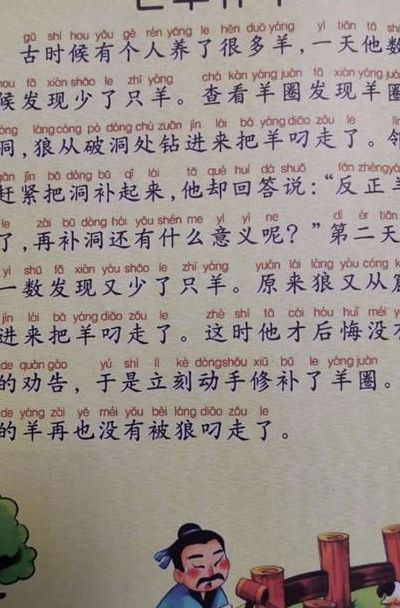 gǔ shí hou yǒu gè rén yǎng le hěn duō yáng yì tiān tā shǔ
古时候有个人养了很多羊，一天他数
hou fā xiàn shǎo le zhī yáng chá kàn yáng juàn fā xiàn yáng juàn
候发现少了只羊。查看羊圈发现羊圈
dòng láng cóng pò dòng chù zuān jìn lái bǎ yáng diāo zǒu le lín
洞，狼从破洞处钻进来把羊叼走了。邻
gǎn jǐn bǎ dòng bǔ qǐ lái tā què huí dá shuō fǎn zhèng yáng
赶紧把洞补起来，他却回答说：“反正羊
le zài bǔ dòng hái yǒu shén me yì yì ne dì èr tiān
了，再补洞还有什么意义呢？”第二天
yì shǔ fā xiàn yòu shǎo le zhī yáng yuán lái láng yòu cóng
一数发现又少了只羊。原来狼又从
jìn lái bǎ yáng diāo zǒu le zhè shí tā cái hòu huǐ méi yǒu
进来把羊叼走了。这时他才后悔没有
de quàn gào yú shì lì kè dòng shǒu xiū bǔ le yáng juàn
的劝告，于是立刻动手修补了羊圈。
de yáng zài yě méi yǒu bèi láng diāo zǒu le
的羊再也没有被狼叼走了。